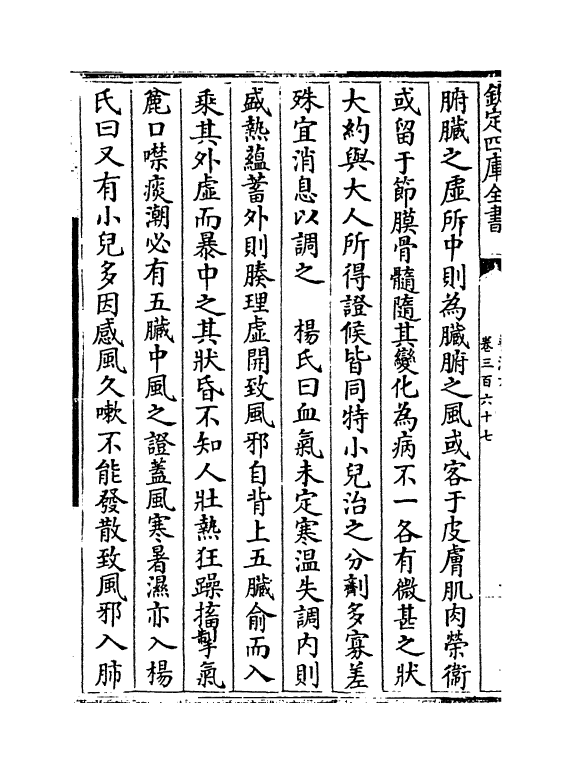 欽定四庫全書
卷三百六十七
腑臟之虛所中則為臟腑之風或客于皮膚肌肉榮衞
或留于節膜骨髓隨其變化為病不一各有微甚之狀
大約與大人所得證候皆同特小兒治之分劑多寡差
殊宜消息以調之　楊氏曰血氣未定寒温失調内則
盛熱蘊蓄外則腠理虛開致風邪自背上五臟俞而入
乘其外虛而暴中之其狀昏不知人壯熱狂躁搐掣氣
麄口噤痰潮必有五臟中風之證蓋風寒暑濕亦入楊
氏曰又有小兒多因感風久嗽不能發散致風邪入肺